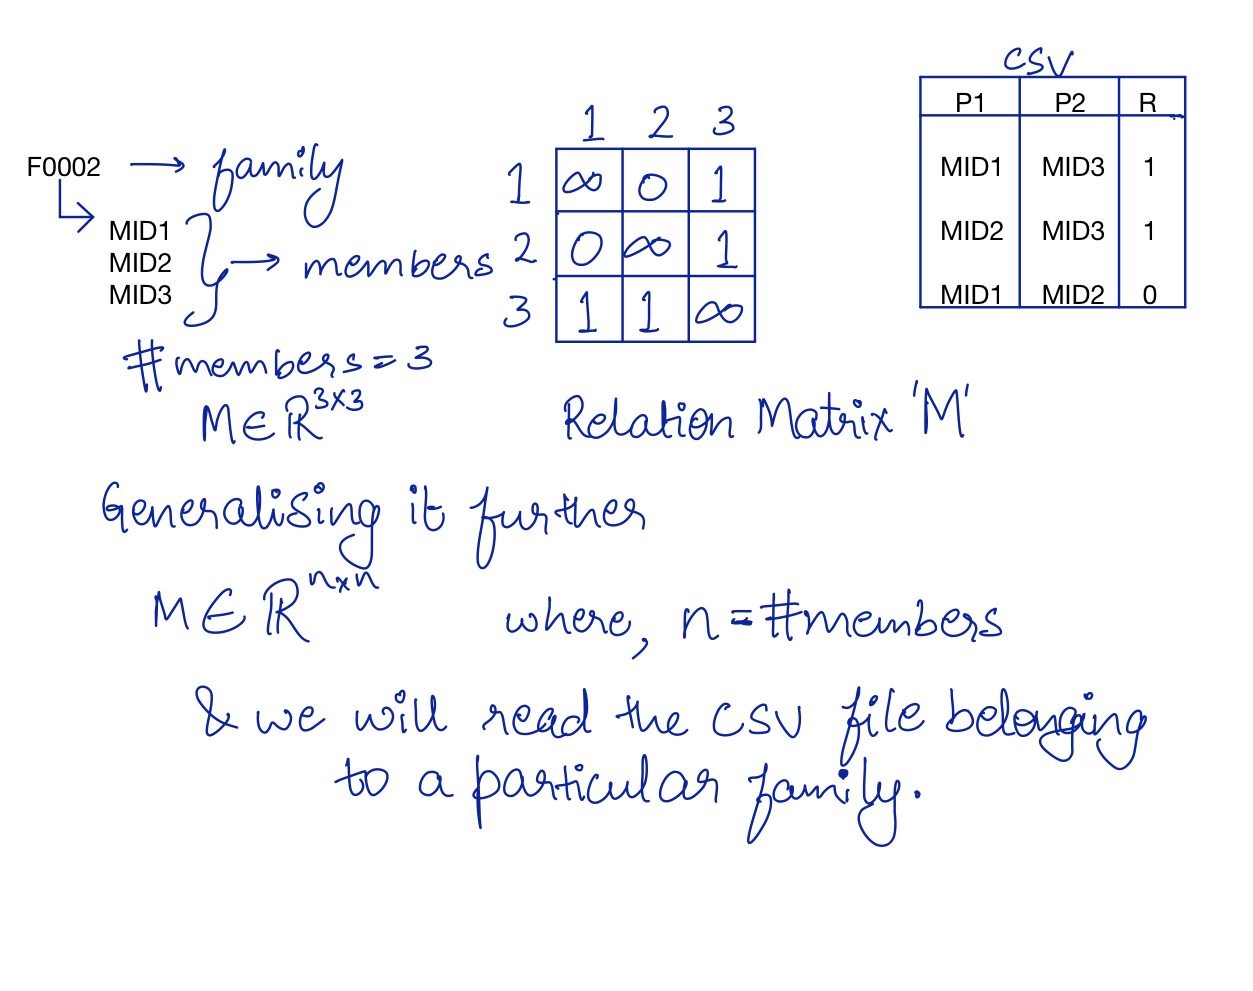 F0002 → family
MID1
MID2
MID3
} → members
#members = 3
M ∈ ℝ^{3×3}
1 2 3
1 ∞ 0 1
2 0 ∞ 1
3 1 1 ∞
Relation Matrix 'M'
CSV
P1 P2 R
MID1 MID3 1
MID2 MID3 1
MID1 MID2 0
Generalising it further
M ∈ ℝ^{n×n} where, n = #members
& we will read the CSV file belonging
to a particular family.